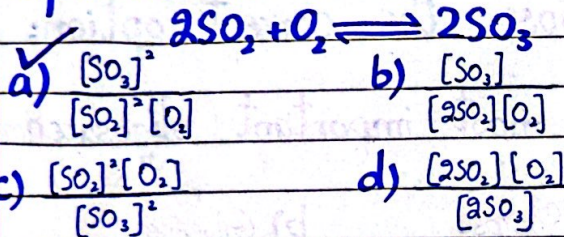 2SO₂ + O₂ ⇌ 2SO₃
a) [SO₃]² / [SO₂]² [O₂] b) [SO₃] / [2SO₂] [O₂]
c) [SO₂]² [O₂] / [SO₃]² d) [2SO₂] [O₂] / [2SO₃]